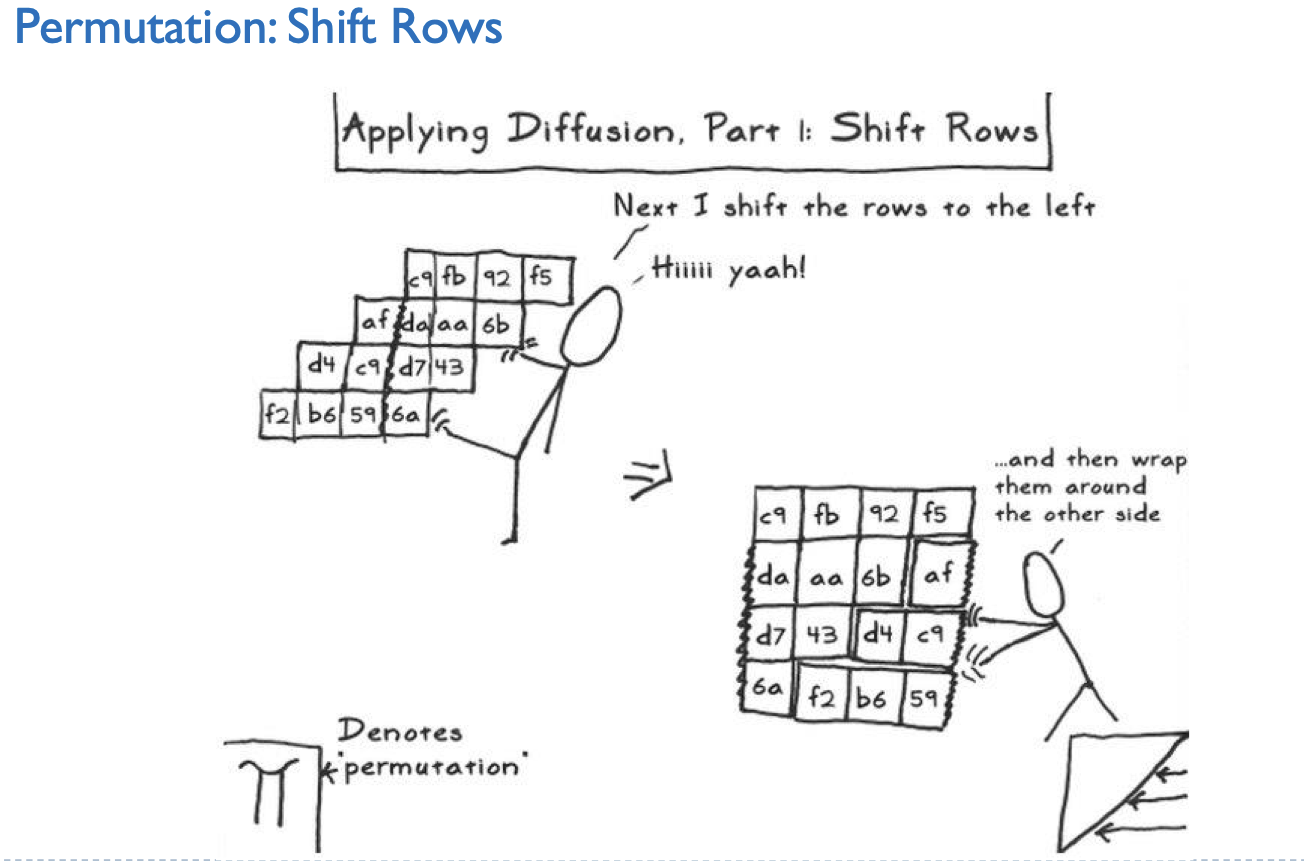 Permutation: Shift Rows
Applying Diffusion, Part 1: Shift Rows
Next I shift the rows to the left
Hiiiii yaah!
c9 fb 92 f5
af da aa 6b
d4 c9 d7 43
f2 b6 59 6a
...and then wrap
them around
the other side
c9 fb 92 f5
da aa 6b af
d7 43 d4 c9
6a f2 b6 59
Denotes
"permutation"
π